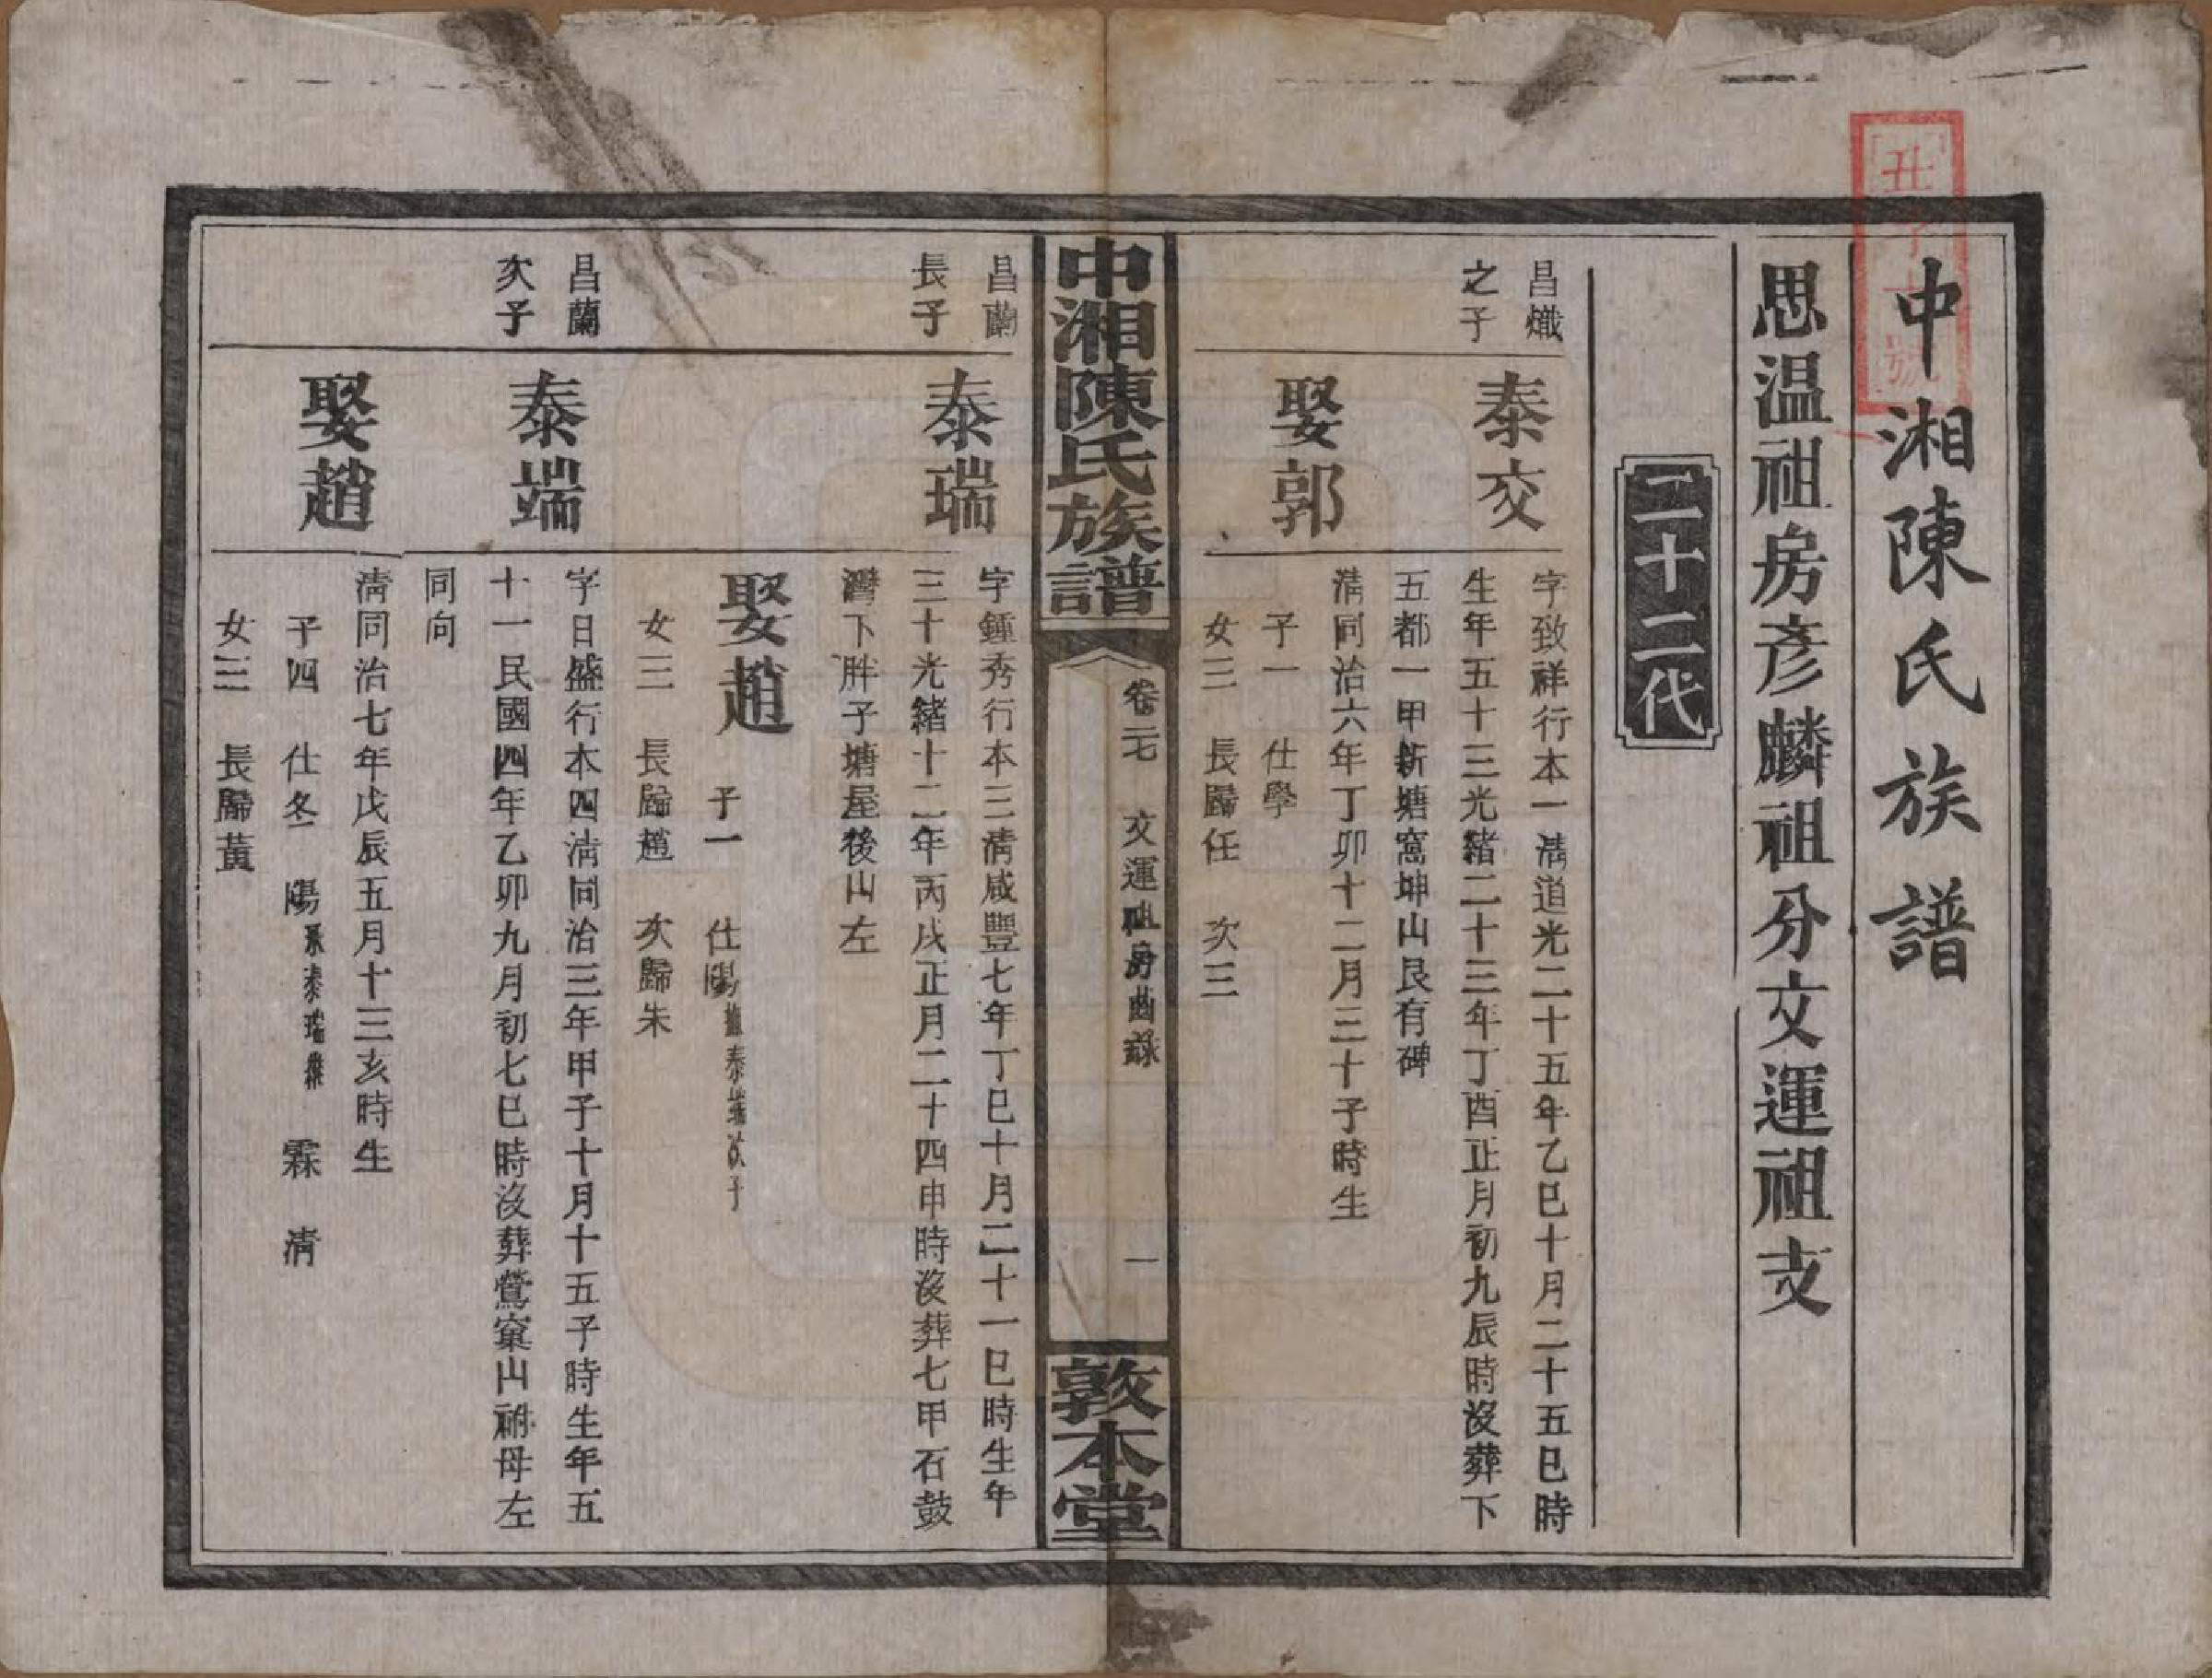 中湘陳氏族譜
思溫祖房彥麟祖分文運祖支
二十二代
昌熾
之子
泰交
字致祥行本一清道光二十五年乙巳十月二十五巳時
生年五十三光緒二十三年丁酉正月初九辰時沒葬下
五都一甲新塘窩坤山艮有碑
娶郭
清同治六年丁卯十二月三十子時生
子一 仕學
女三 長歸任 次三
中湘陳氏族譜
卷二七 文運祖房齒錄
一
敦本堂
昌蘭
長子
泰瑞
字鍾秀行本三清咸豐七年丁巳十月二十一巳時生年
三十光緒十二年丙戌正月二十四申時沒葬七甲石鼓
灣下胖子塘屋後山左
娶趙
子一 仕陽撫泰端次子
女三 長歸趙 次歸朱
昌蘭
次子
泰端
字日盛行本四清同治三年甲子十月十五子時生年五
十一民國四年乙卯九月初七巳時沒葬鶯窠山祔母左
同向
娶趙
清同治七年戊辰五月十三亥時生
子四 仕冬 陽承泰瑞業 霖 清
女三 長歸黃